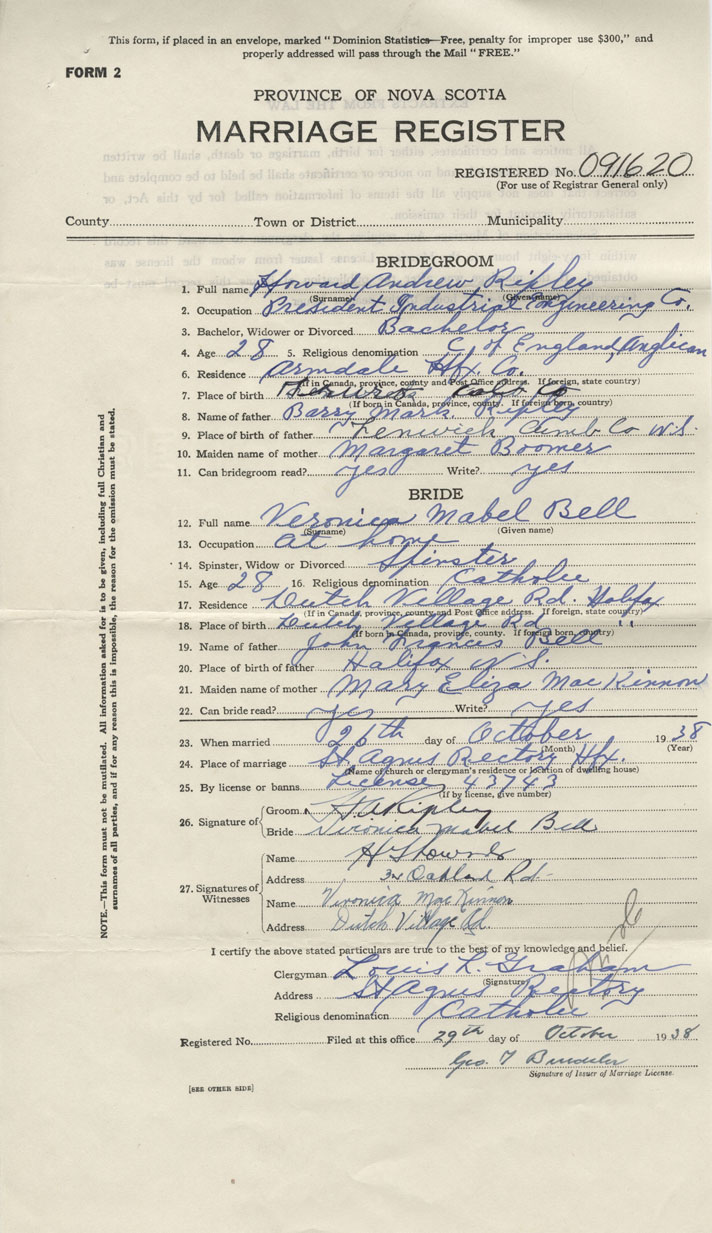 This form, if placed in an envelope, marked "Dominion Statistics—Free, penalty for improper use $300," and
properly addressed will pass through the Mail "FREE."
FORM 2
PROVINCE OF NOVA SCOTIA
MARRIAGE REGISTER
REGISTERED No. 091620
(For use of Registrar General only)
County Town or District Municipality
BRIDEGROOM
1. Full name Howard Andrew Ripley
(Surname) (Given name)
2. Occupation President Industrial Engineering Co.
3. Bachelor, Widower or Divorced Bachelor
4. Age 28 5. Religious denomination C of England, Anglican
6. Residence Armdale Hfx. Co.
(If in Canada, province, county and Post Office address. If foreign, state country)
7. Place of birth
(If born in Canada, province, county. If foreign born, country)
8. Name of father Barry Mark Ripley
9. Place of birth of father Fenwick Cumb Co N.S.
10. Maiden name of mother Margaret Boomer
11. Can bridegroom read? yes Write? yes
BRIDE
12. Full name Veronica Mabel Bell
(Surname) (Given name)
13. Occupation at home
14. Spinster, Widow or Divorced Spinster
15. Age 28 16. Religious denomination Catholic
17. Residence Dutch Village Rd. Halifax
(If in Canada, province, county and Post Office address. If foreign, state country)
18. Place of birth Dutch Village Rd "
(If born in Canada, province, county. If foreign born, country)
19. Name of father John Francis Bell
20. Place of birth of father Halifax N.S.
21. Maiden name of mother Mary Eliza MacKinnon
22. Can bride read? yes Write? yes
23. When married 26th day of October 1938
(Month) (Year)
24. Place of marriage St. Agnes Rectory Hfx.
(Name of church or clergyman's residence or location of dwelling house)
25. By license or banns License 43743
(If by license, give number)
26. Signature of Groom H A Ripley
Bride Veronica Mabel Bell
27. Signatures of Witnesses
Name
Address 34 Oakland Rd-
Name Veronica MacKinnon
Address Dutch Village Rd.
I certify the above stated particulars are true to the best of my knowledge and belief.
Clergyman Louis L. Graham
(Signature)
Address St Agnes Rectory
Religious denomination Catholic
Registered No. Filed at this office 29th day of October 1938
Geo. T
Signature of Issuer of Marriage License.
[SEE OTHER SIDE]
NOTE.—This form must not be mutilated. All information asked for is to be given, including full Christian and
surnames of all parties, and if for any reason this is impossible, the reason for the omission must be stated.